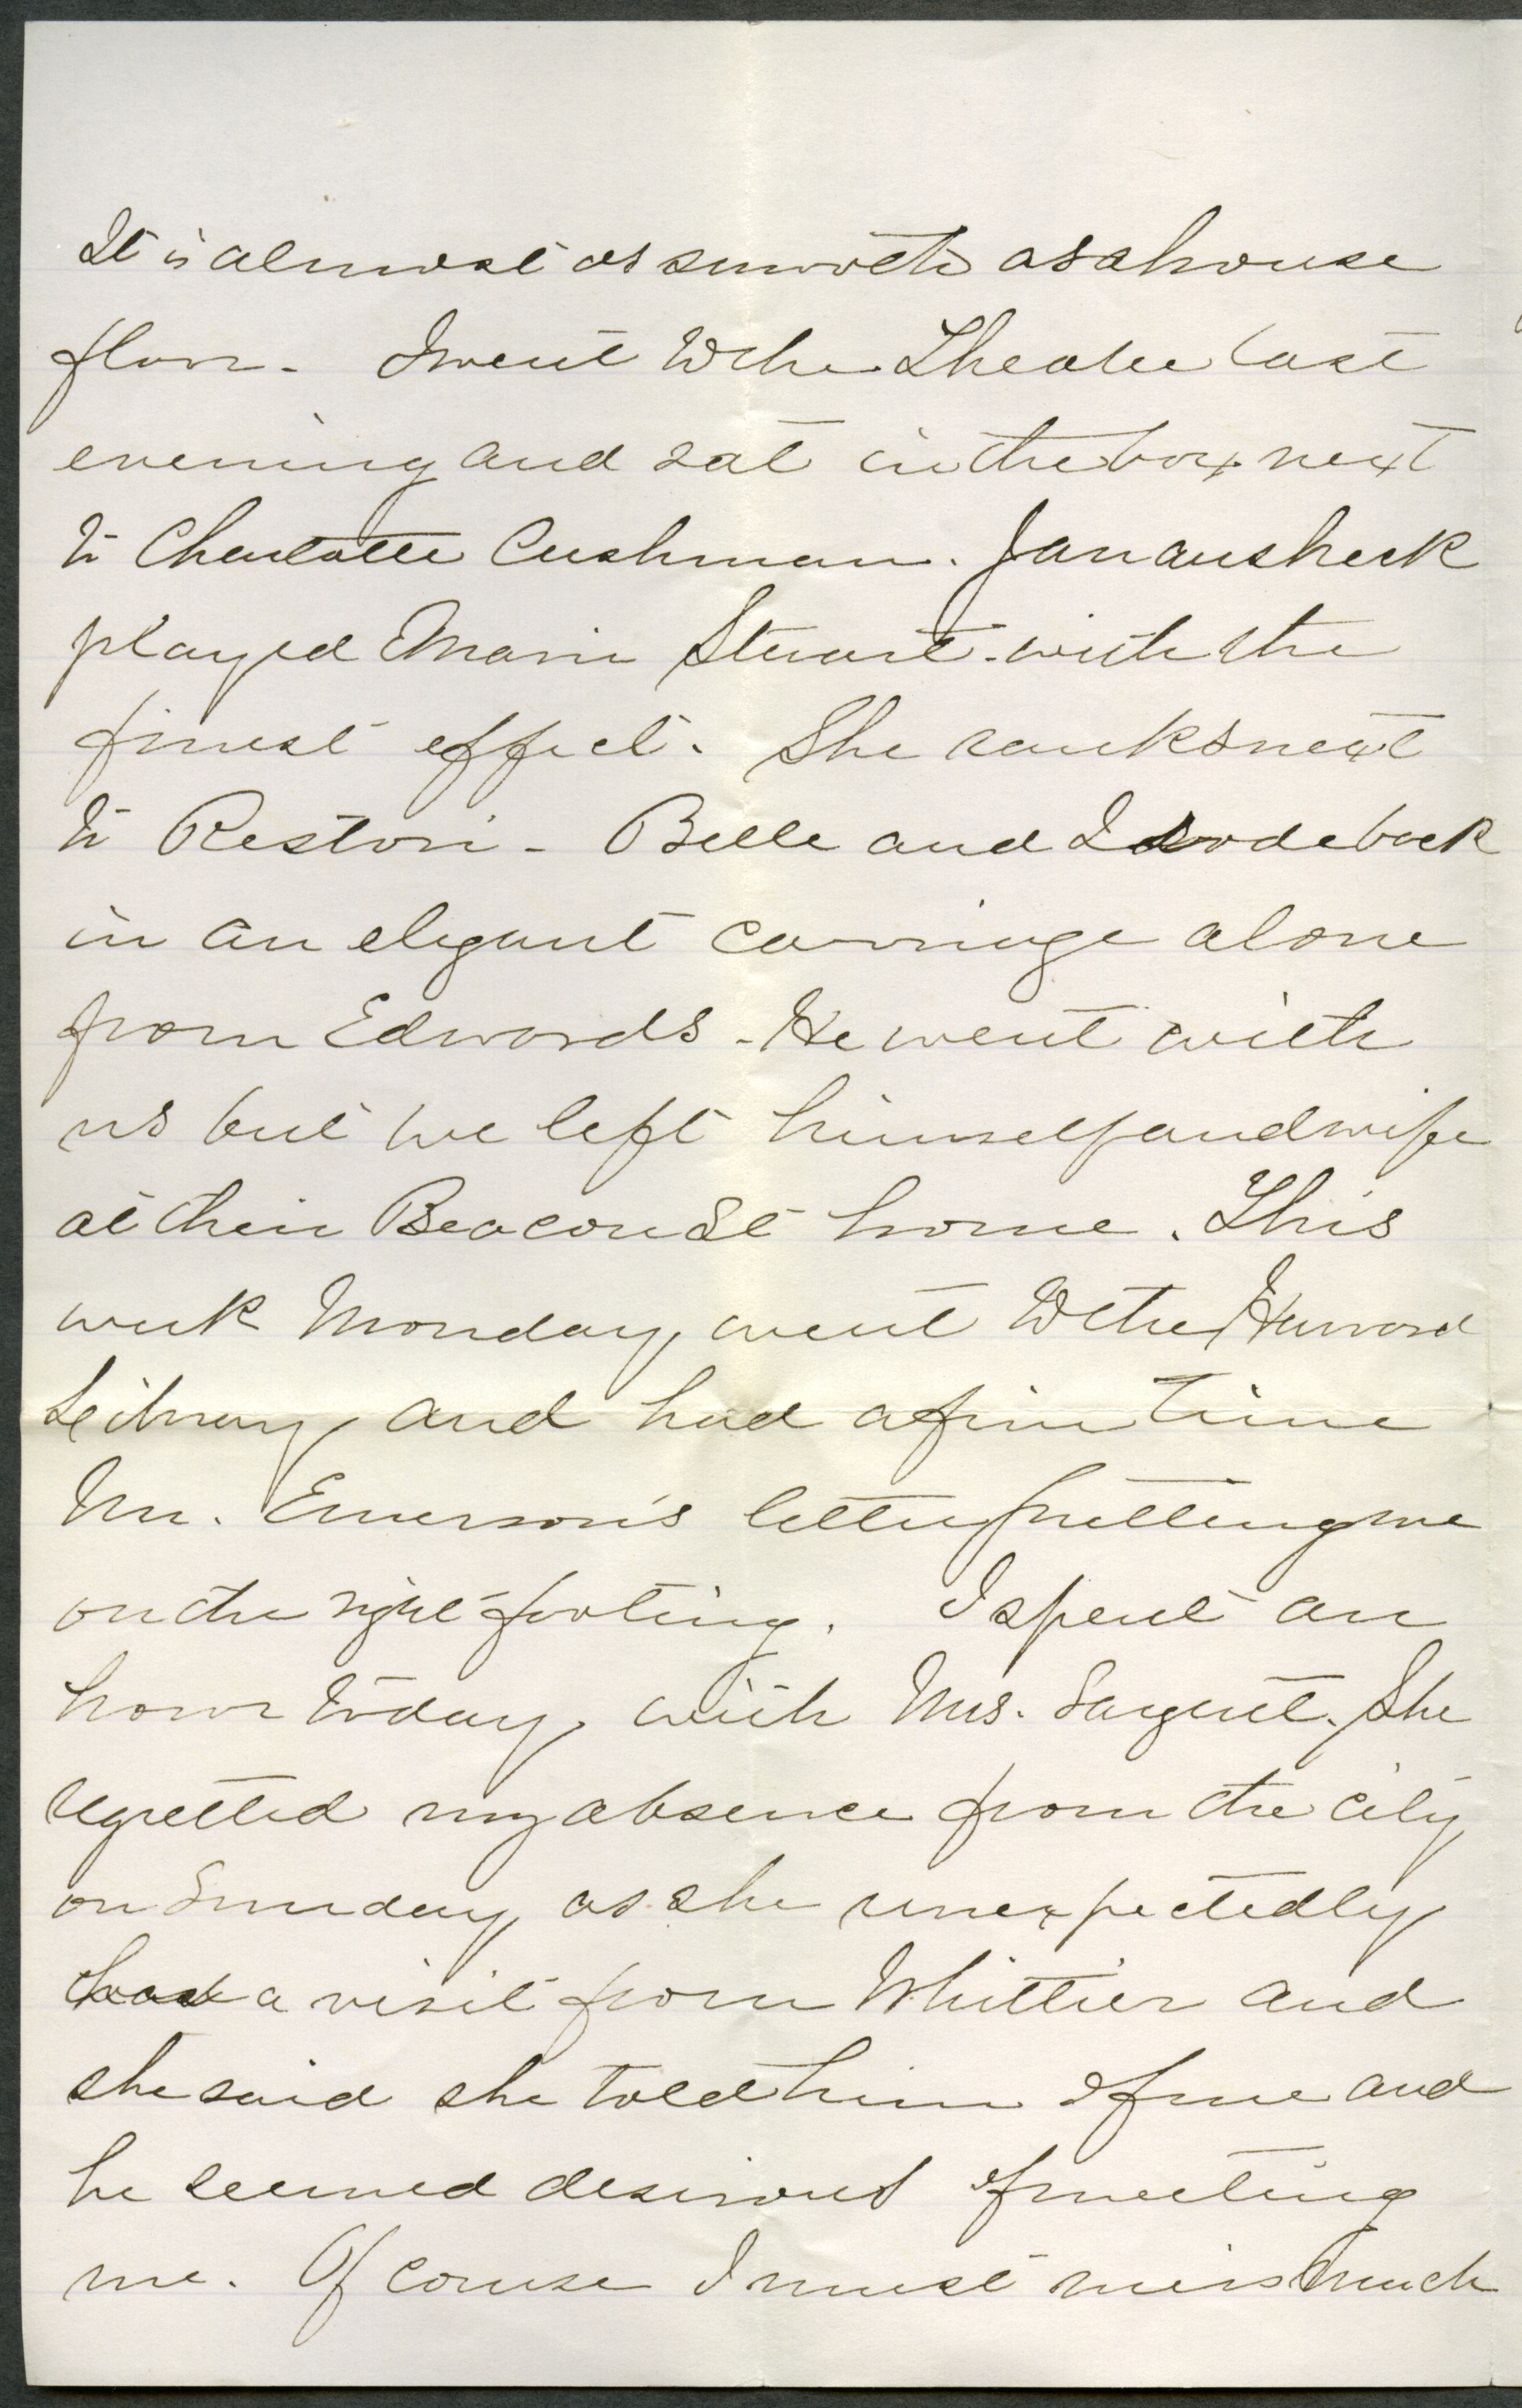 It is almost as smooth as a house
floor. I went to the Theatre last
evening and sat in the box next
to Charlotte Cushman. Janausheck
played Marie Stuart with the
finest effect. She ranks next
to Restori - Belle and I rode back
in an elegant carriage alone
from Edwards - He went with
us but we left himself and wife
at their Beacon St home. This
week Monday, went to the Harvard
Library and had a fine time
Mr. Emerson's letter putting me
on the right footing. I spent an
hour today, with Mrs. Sargent. She
regretted my absence from the city
on Sunday, as she unexpectedly
had a visit from Whittier and
she said she told him of me and
he seemed desirous of meeting
me. Of course I must miss much